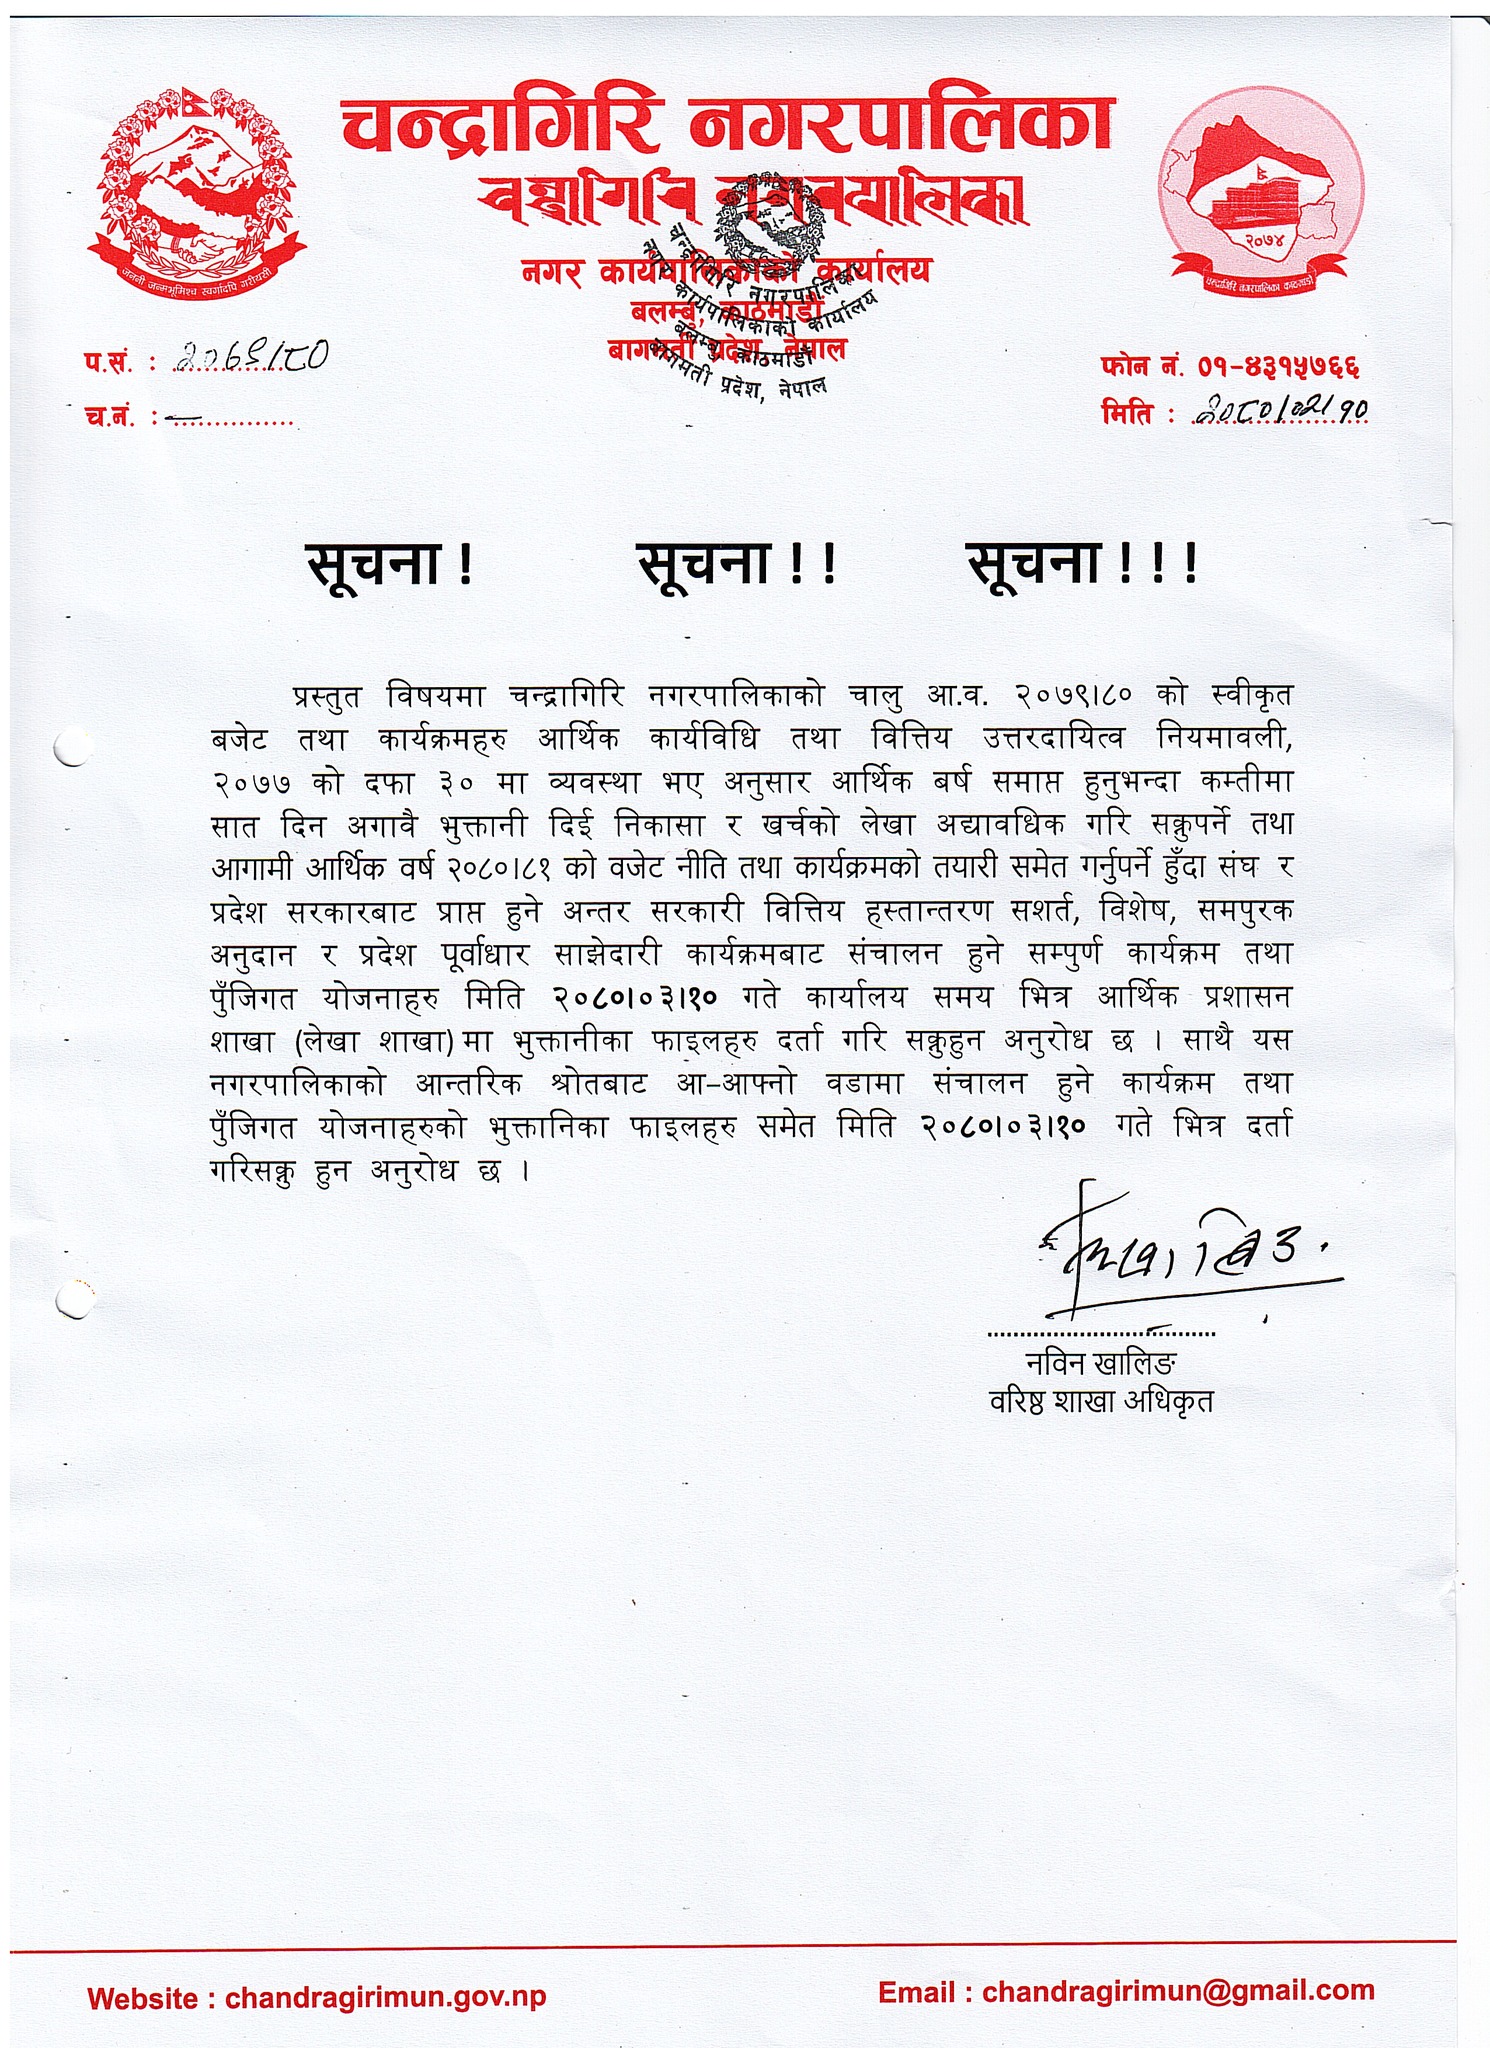 चन्द्रागिरि नगरपालिका
नगर कार्यपालिकाको कार्यालय
बलम्बु, काठमाडौं
बागमती प्रदेश, नेपाल
जननी जन्मभूमिश्च स्वर्गादपि गरीयसी
२०७४
चन्द्रागिरि नगरपालिका काठमाडौं
चन्द्रागिरि नगरपालिका
नगर कार्यपालिकाको कार्यालय
बलम्बु, काठमाडौं
बागमती प्रदेश, नेपाल
प.सं. : २०७९/८०
च.नं. : -
फोन नं. ०१-४३१५७६६
मिति : २०८०/०२/१०
सूचना ! सूचना ! ! सूचना ! ! !
प्रस्तुत विषयमा चन्द्रागिरि नगरपालिकाको चालु आ.व. २०७९।८० को स्वीकृत
बजेट तथा कार्यक्रमहरु आर्थिक कार्यविधि तथा वित्तिय उत्तरदायित्व नियमावली,
२०७७ को दफा ३० मा व्यवस्था भए अनुसार आर्थिक बर्ष समाप्त हुनुभन्दा कम्तीमा
सात दिन अगावै भुक्तानी दिई निकासा र खर्चको लेखा अद्यावधिक गरि सक्नुपर्ने तथा
आगामी आर्थिक वर्ष २०८०।८१ को वजेट नीति तथा कार्यक्रमको तयारी समेत गर्नुपर्ने हुँदा संघ र
प्रदेश सरकारबाट प्राप्त हुने अन्तर सरकारी वित्तिय हस्तान्तरण सशर्त, विशेष, समपुरक
अनुदान र प्रदेश पूर्वाधार साझेदारी कार्यक्रमबाट संचालन हुने सम्पुर्ण कार्यक्रम तथा
पुँजिगत योजनाहरु मिति २०८०।०३।१० गते कार्यालय समय भित्र आर्थिक प्रशासन
शाखा (लेखा शाखा) मा भुक्तानीका फाइलहरु दर्ता गरि सक्नुहुन अनुरोध छ । साथै यस
नगरपालिकाको आन्तरिक श्रोतबाट आ-आफ्नो वडामा संचालन हुने कार्यक्रम तथा
पुँजिगत योजनाहरुको भुक्तानिका फाइलहरु समेत मिति २०८०।०३।१० गते भित्र दर्ता
गरिसक्नु हुन अनुरोध छ ।
नविन खालिङ
वरिष्ठ शाखा अधिकृत
Website : chandragirimun.gov.np
Email : chandragirimun@gmail.com